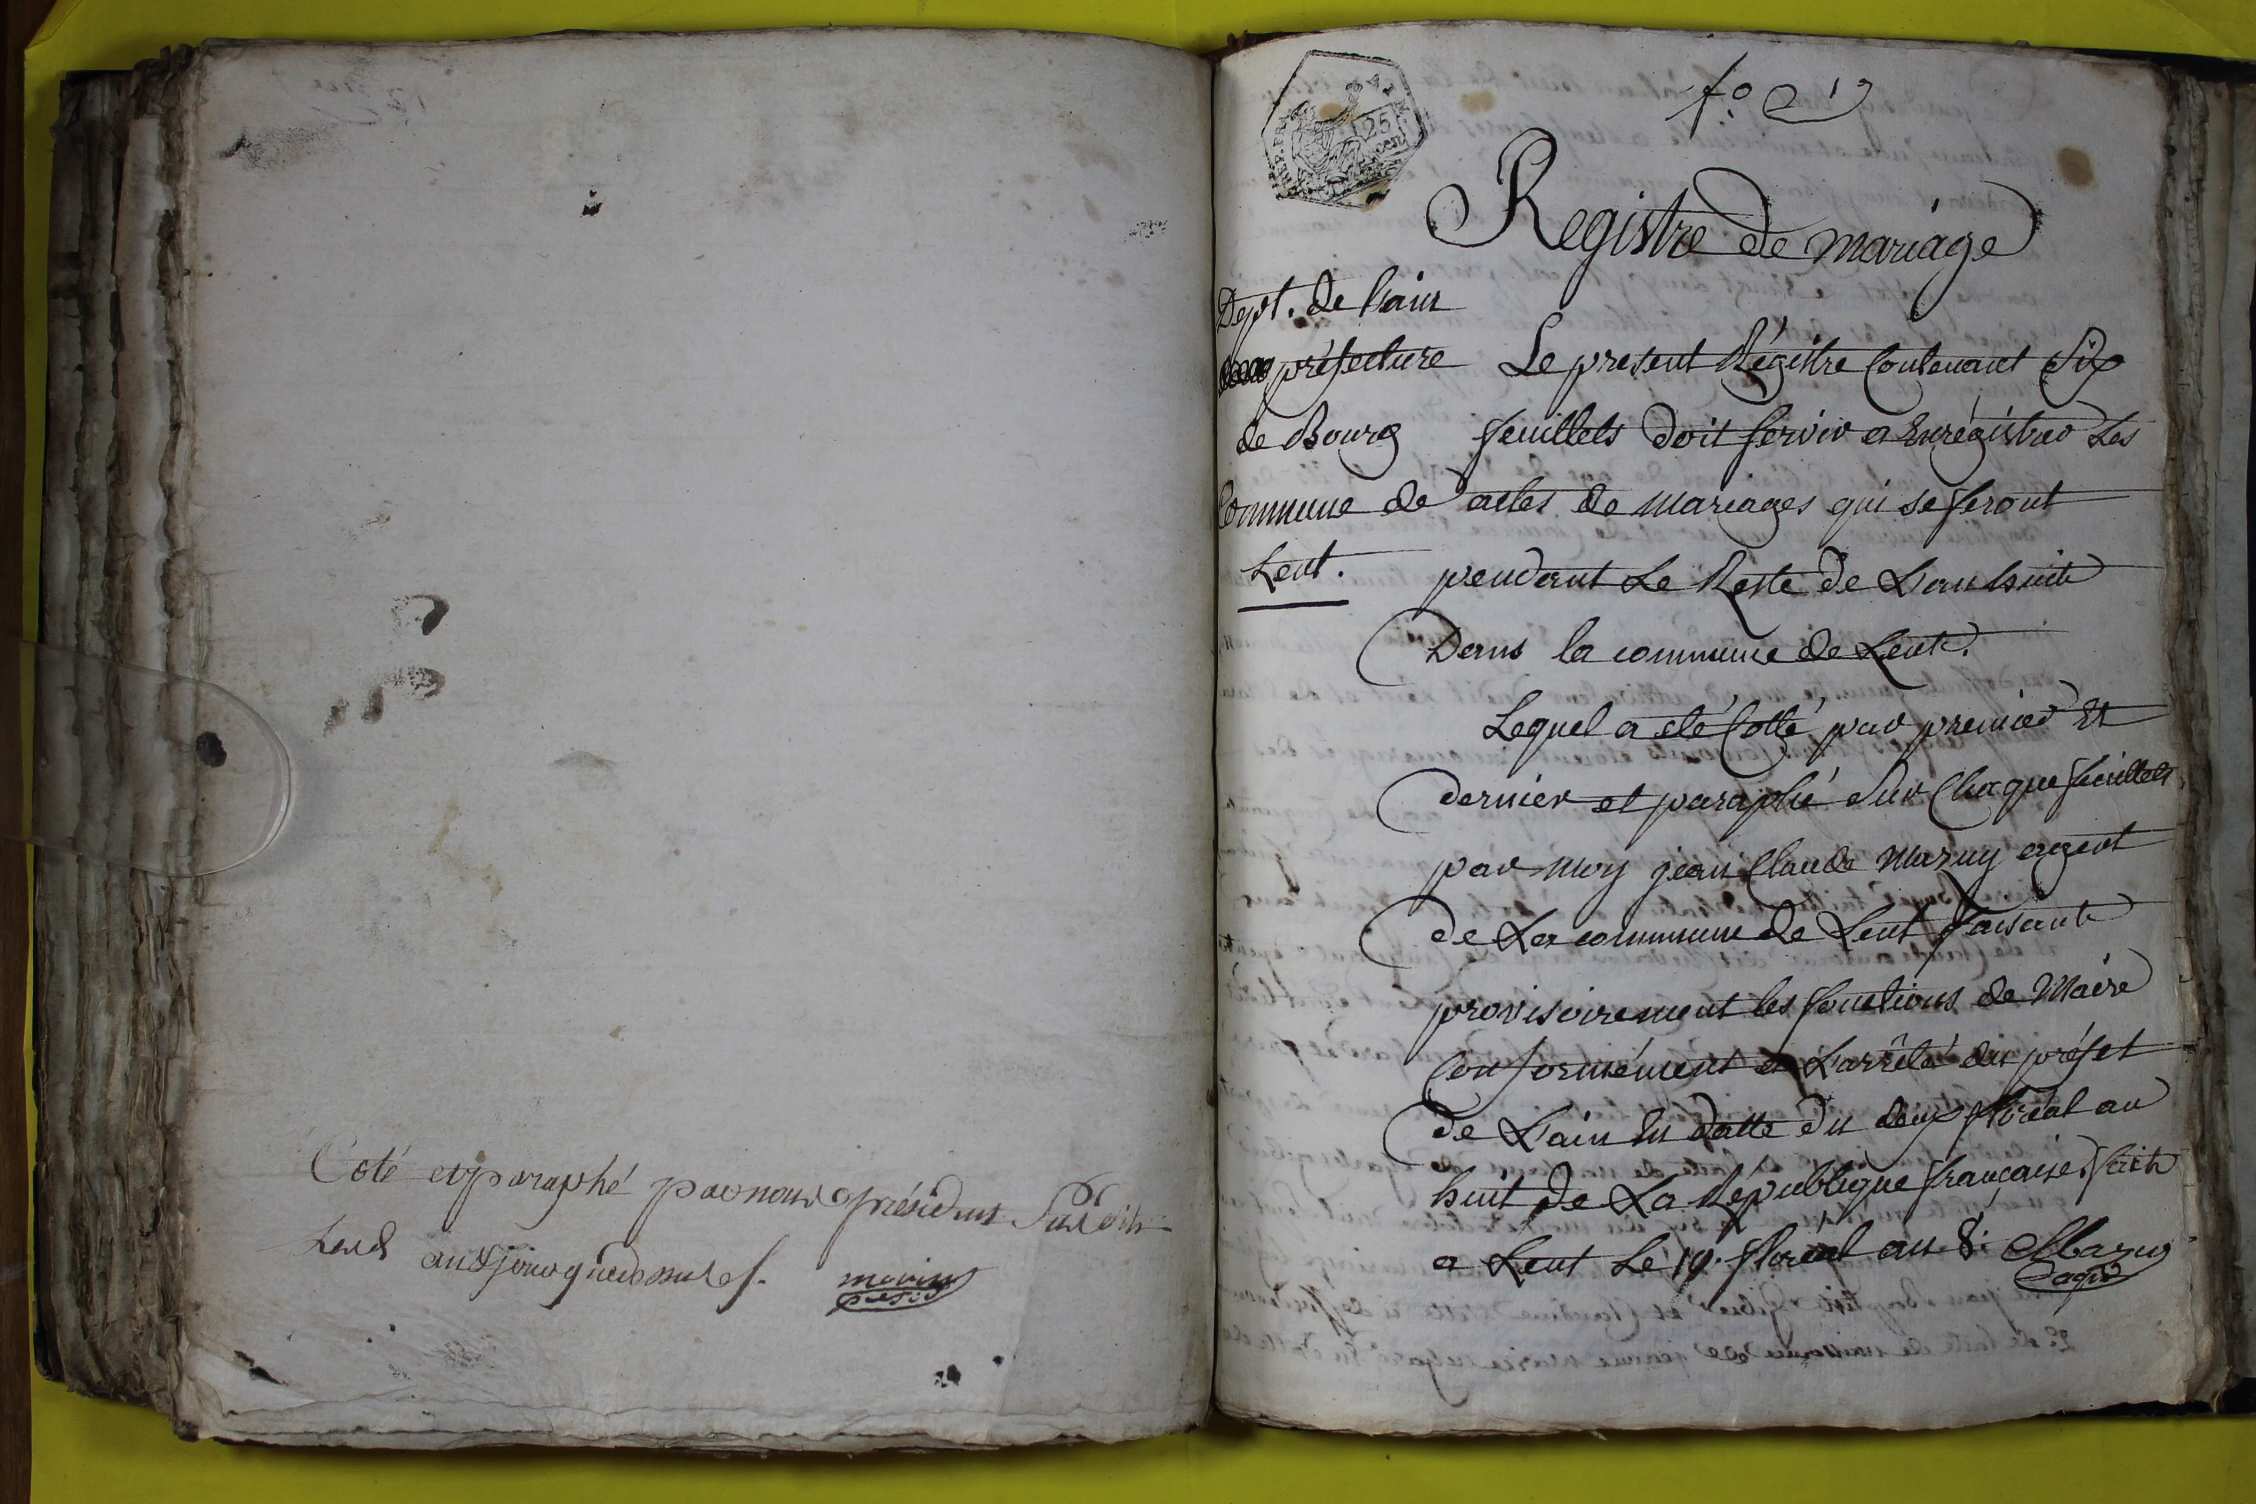 Coté et paraphé par nous président Susdit
Lesd an & jour que dessus
morin
présid
f.o 1
25
cen
Registre de mariage
Dept. de L'ain
préfecture
de Bourg
Commune de
Lent.
Le present Régistre Contenant Six
feuillets doit servir a Enrégistrer Les
actes de mariages qui se feront
pendant Le Reste de L'an huit
Dans la commune de Lent.
Lequel a été Cotté par premier Et
dernier et paraphé Sur Chaque feuillets
par moy jean Claude Mazuy agent
de La commune de Lent faisant
provisoirement les fonctions de Maire
Conformément a L'arrêté du préfet
de L'ain En datte du deux floréal an
huit de La République française. fait
a Lent Le 19. floreal an 8. Mazuy
agt